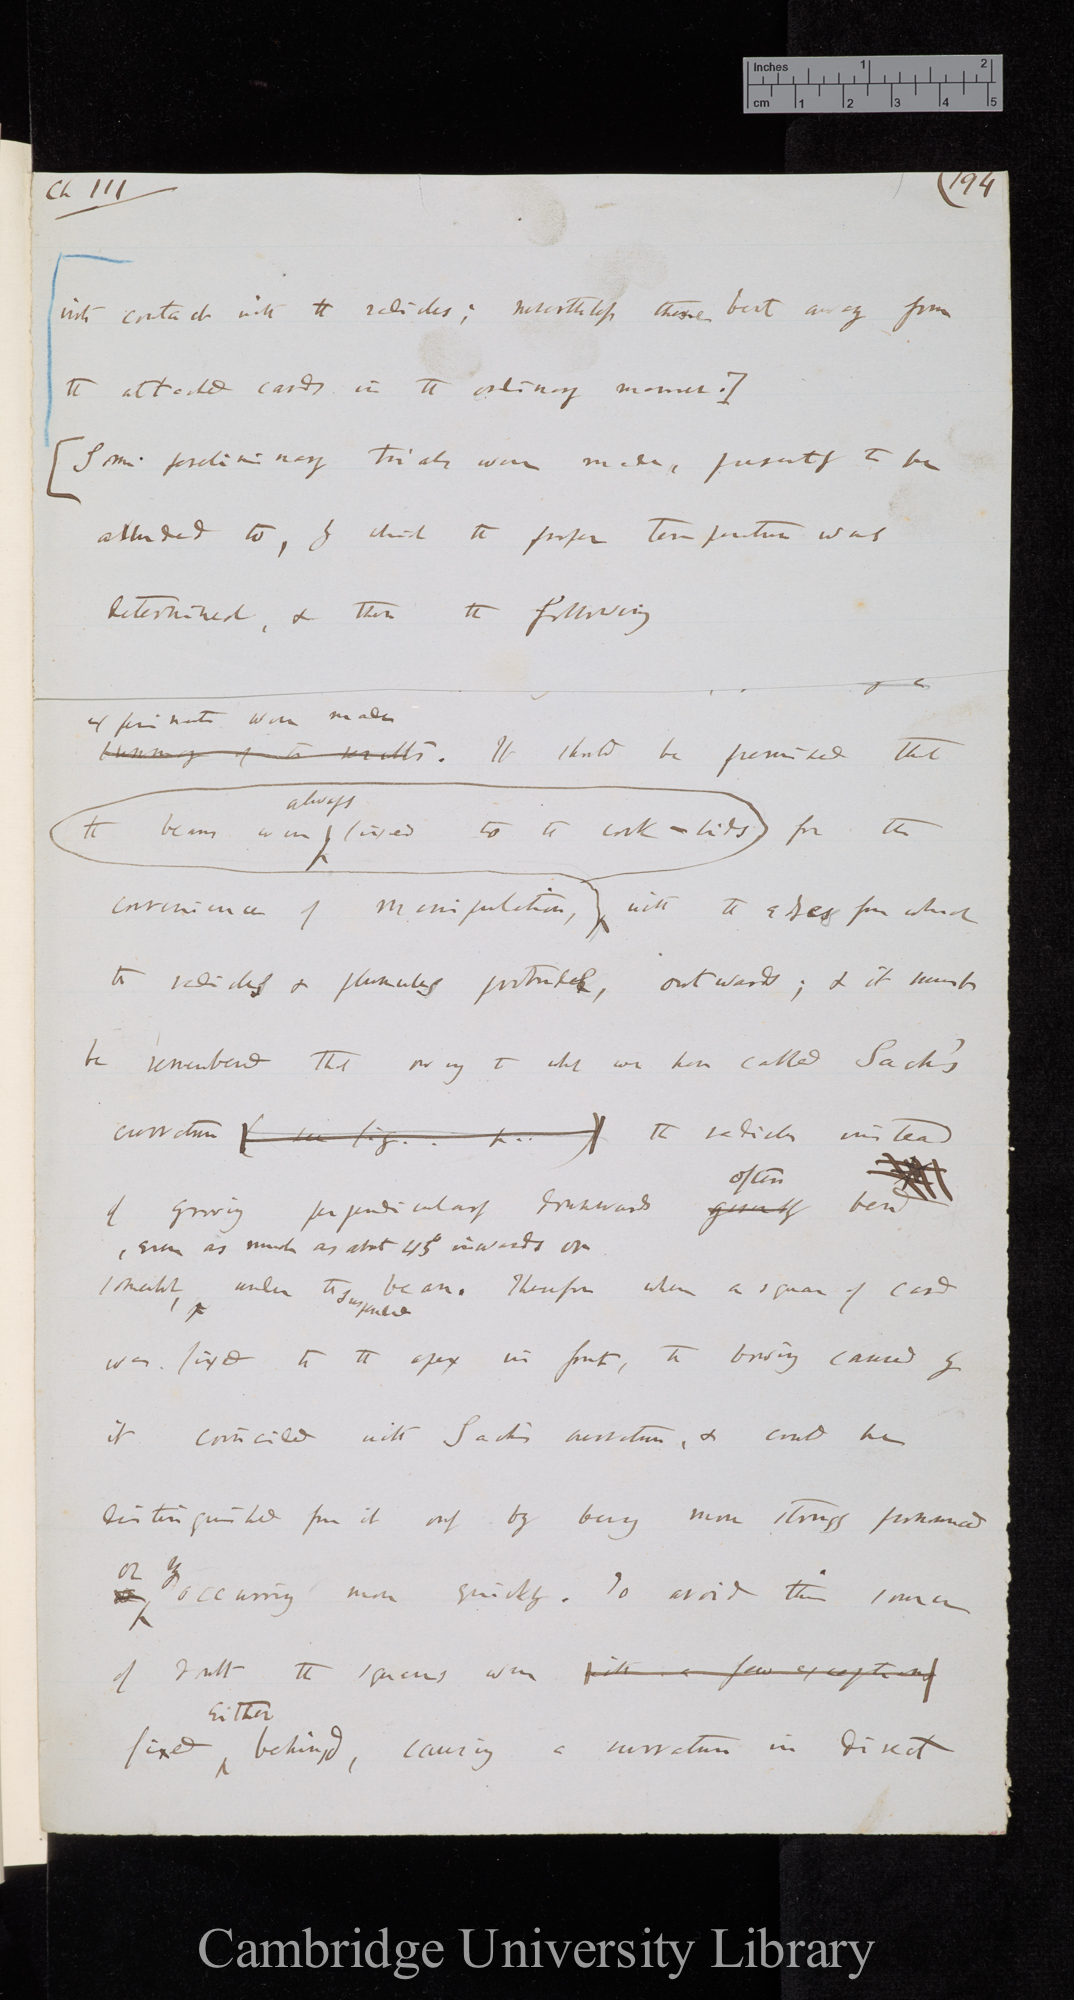 Inches 1 2
cm 1 2 3 4 5
Ch III
(194
into contact with the radicles; nevertheless these bent away from
the attached cards in the ordinary manner.]
[Some preliminary trials were made, presently to be
alluded to, by which the proper temperature was
determined, & then the following
experiments were made
summary of the results. It should be premised that
always
the beans were fixed to the cork-lids, for the
convenience of manipulation, with the edges from which
the radicles & plumules protrude, outwards; & it must
be remembered that owing to what we have called Sachs'
curvature (see fig. . . p. . .) the radicles instead
often
of growing perpendicularly downwards generally bend
, even as much as about 45° inwards or
somewhat, under the bean. Therefore when a square of card
suspended
was fixed to the apex in front, the bowing caused by
it coincided with Sachs' curvature, & could be
distinguished from it only by being more strongly pronounced
or by
occurring more quickly. To avoid this source
of doubt the squares were with a few exceptions
either
fixed behind, causing a curvature in direct
Cambridge University Library